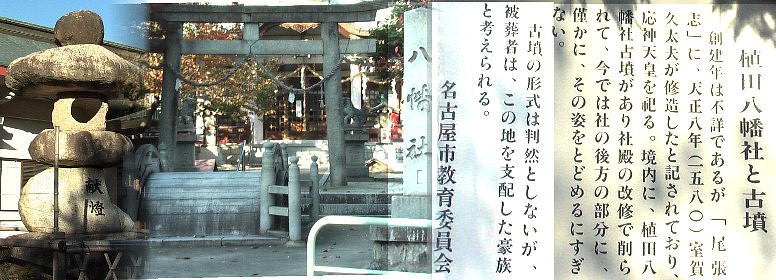 植田八幡社と古墳
創建年は不詳であるが、「尾張
志」に、天正八年(一五八〇)室賀
久太夫が修造したと記されており、
応神天皇を祀る。境内に、植田八
幡社古墳があり社殿の改修で削ら
れて、今では社の後方の部分に、
僅かに、その姿をとどめるにすぎ
ない。
古墳の形式は判然としないが、
被葬者は、この地を支配した豪族
と考えられる。
名古屋市教育委員会
八幡社
献燈